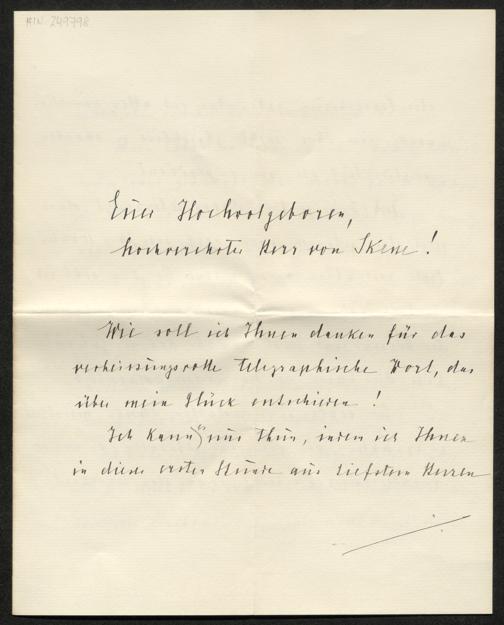 HIN 249798
Euer Hochwolgeboren,
hochverehrter Herr von Skene!
Wie soll ich Ihnen danken für das
verheissungsvolle telegraphische Wort, das
über mein Glück entschieden!
Ich kann's nur thun, indem ich Ihnen
in dieser ersten Stunde aus tiefstem Herzen